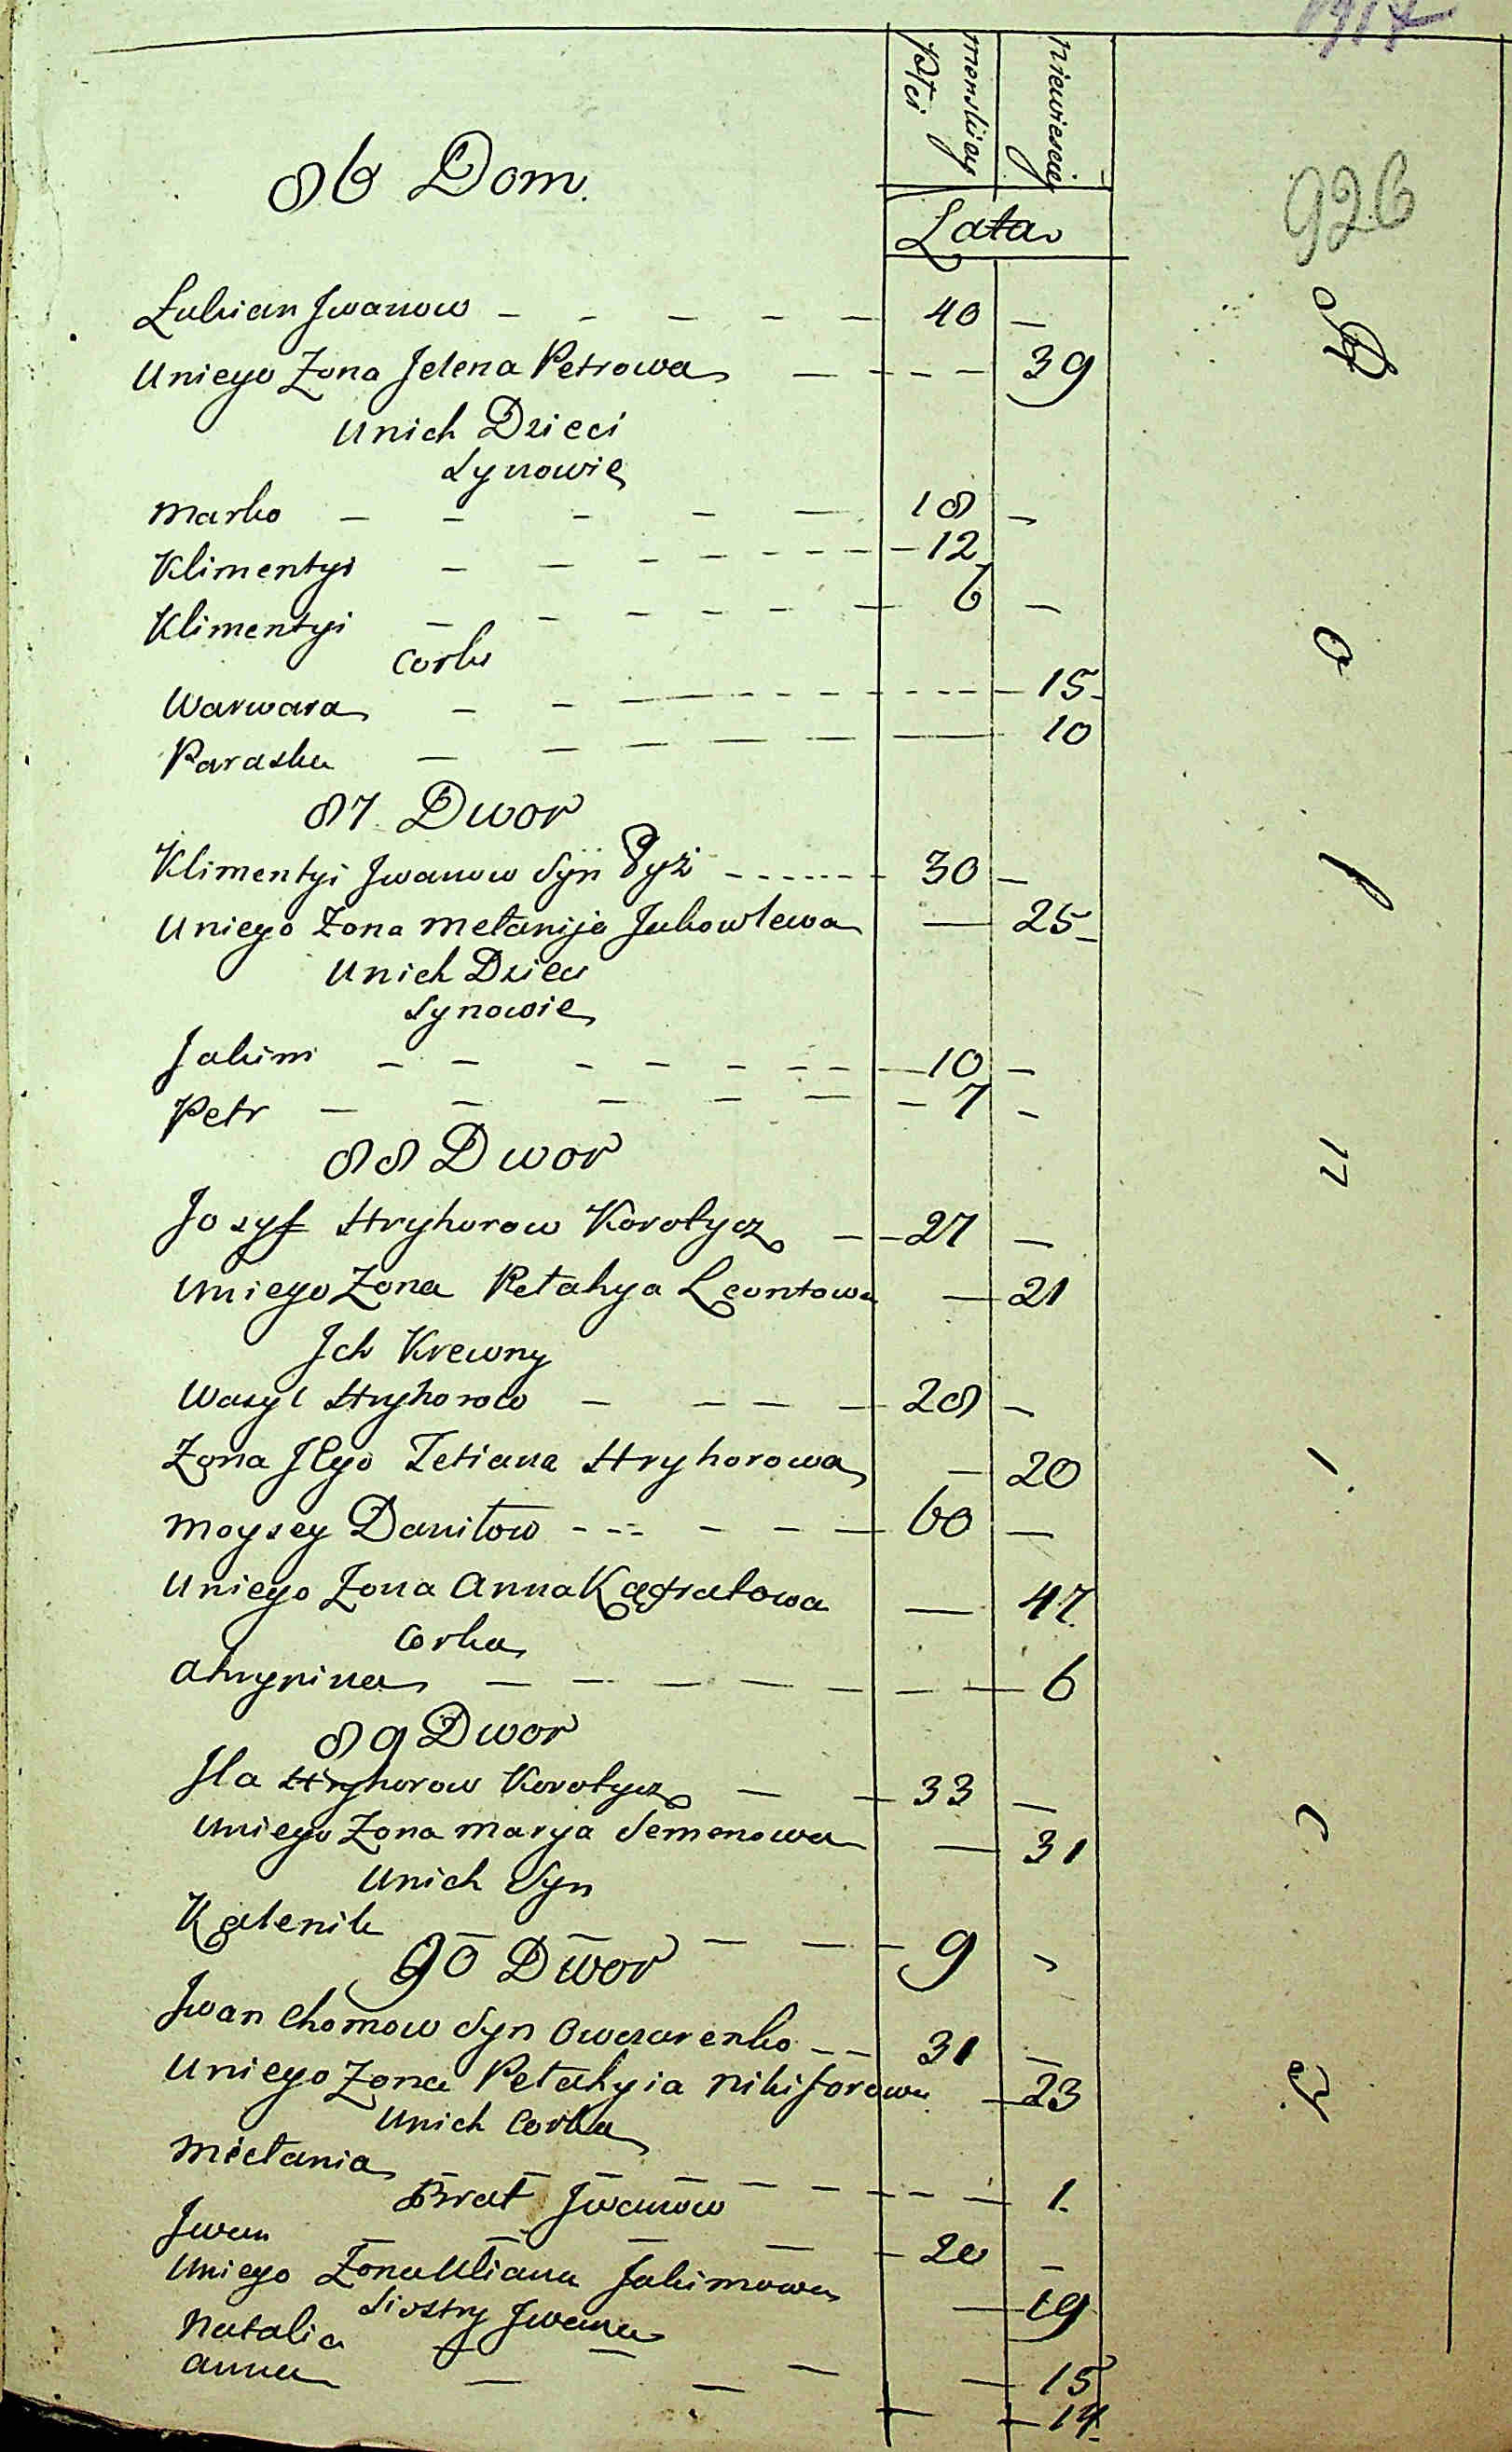 1917
męnskiey Płci
niewiesciey
926
86 Dom.
Lata
Łukian Jwanow - - - - - 40 -
Uniego Zona Jelena Petrowa - - - - 39
Unich Dzieci
Synowie
Marko - - - - - 18 -
Klimentyi - - - - - - - - 12
Klimentyi - - - - - - 6 -
Corki
Warwara - - - - - - - - 15
Paraska - - - - - - - 10
87 Dwor
Klimentyi Jwanow Syn - - - - - - 30 -
Uniego Zona Mełanija Jakowlewa - 25
Unich Dzieci
Synowie
Jakim - - - - - - - - 10 -
Petr - - - - - - 7 -
88 Dwor
Josyf Hryhorow Korotycz - - 27 -
Uniego Zona Pełahya Leontowa - 21
Jch Krewny
Wasyl Hryhorow - - - - 28 -
Zona Jego Tetiana Hryhorowa - 20
Moysey Daniłow - - - - - - 60 -
Uniego Zona Anna - 47
Corka
Ahrypina - - - - - - - 6
89 Dwor
Jla Hryhorow Korotycz - - 33 -
Uniego Zona Marya Semenowa - 31
Unich Syn
Kalenik - - - - - 9 -
90 Dwor
Jwan Chomow Syn Owczarenko - - 31 -
Uniego Zona Pełahyia Nikiforowa - 23
Unich Corka
Miełania - - - - - - - - 1
Brat Jwanow
Jwan - - - - - 20 -
Uniego Zona Uliana Jakimowa - 19
Siostry Jwana
Natalia - - - - 15
Anna - - - - - 14